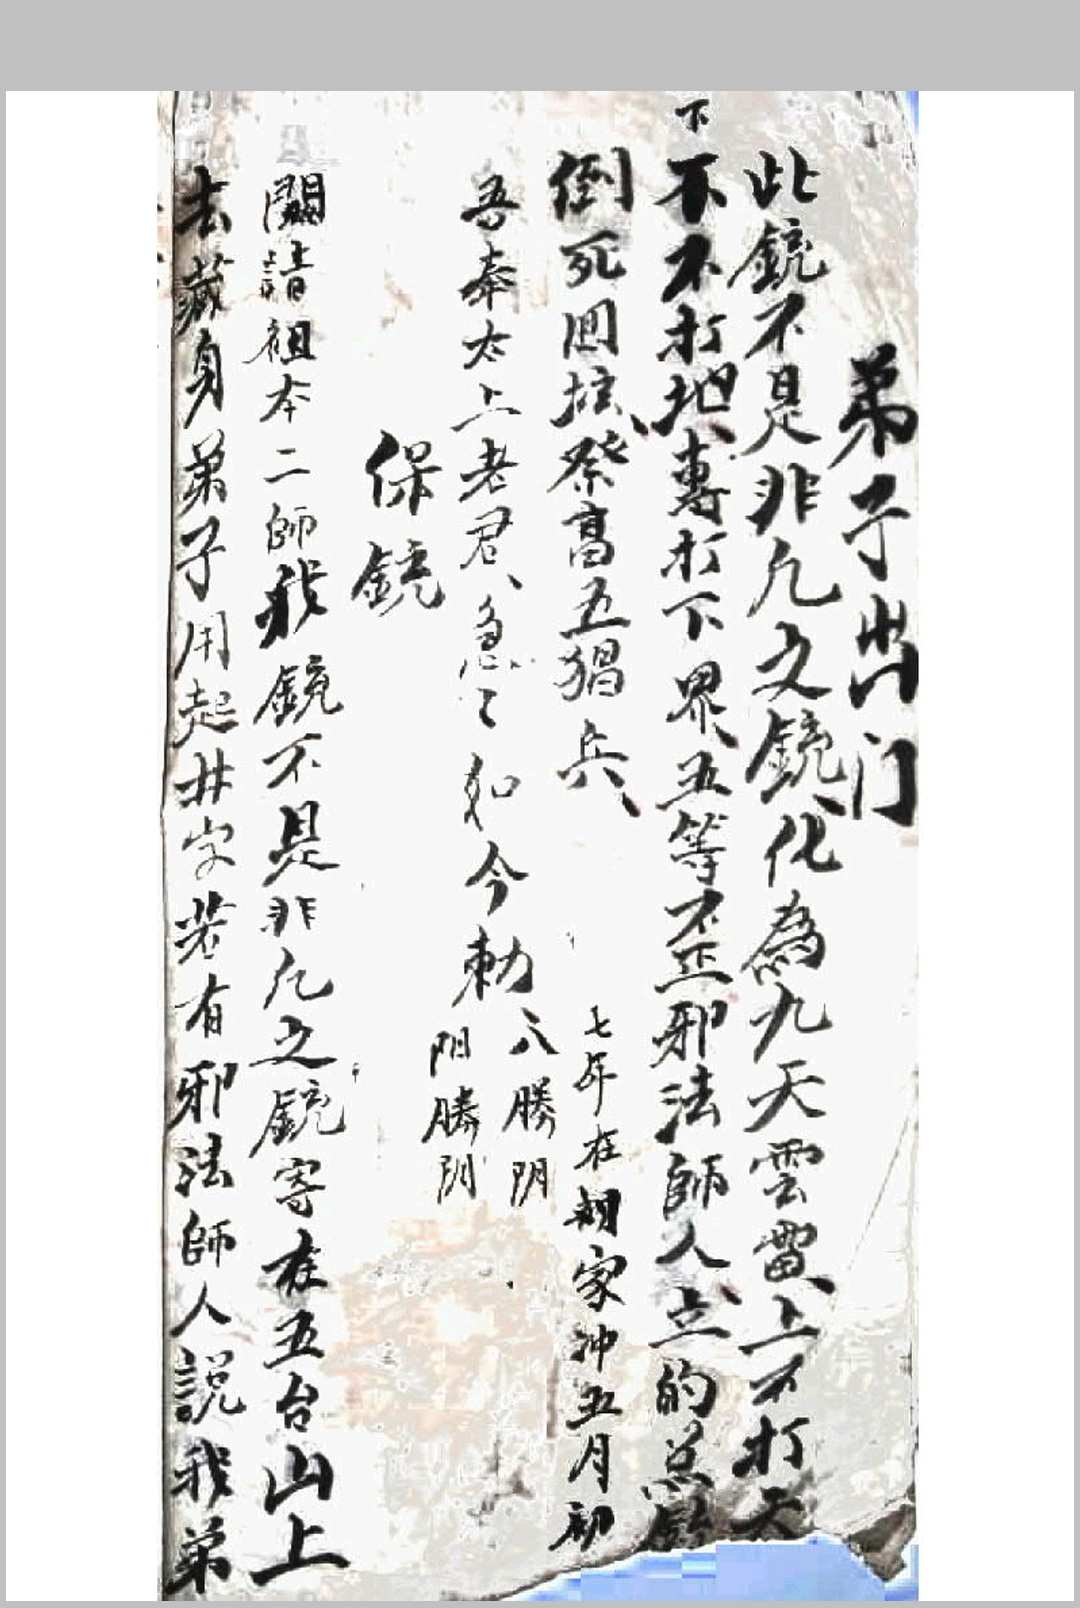 弟子出门
此鏡不是非凡之鏡化為九天雲雷上不打天
下不不打地專打下界五等不正邪法師人立的总
倒死回坛祭高五猖兵
七年在胡家冲五月初
吾奉太上老君急〻如今勅
八勝阴
阳勝阴
保鏡
闘請祖本二師我鏡不是非凡之鏡寄在五台山上
去藏身弟子用起井字若有邪法師人説我弟